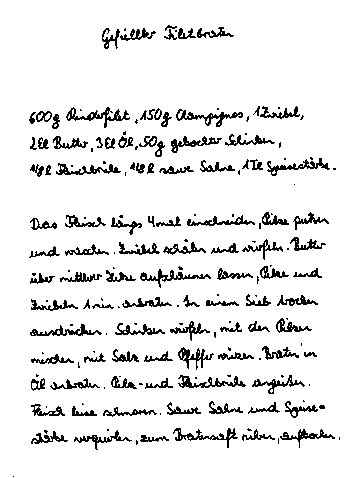 Gefüllter Filetbraten
600g Rinderfilet, 150g Champignos, 1 Zwiebel,
2 El Butter, 3 El Öl, 50g gekochter Schinken,
1/8 l Fleischbrühe, 1/8 l saure Sahne, 1 Tl Speisestärke.
Das Fleisch längs 4 mal einschneiden, Pilze putzen
und waschen. Zwiebel schälen und würfeln. Butter
über mittlerer Hitze aufschäumen lassen, Pilze und
Zwiebeln 1 min. anbraten. In einem Sieb trocken
ausdrücken. Schinken würfeln, mit den Pilzen
mischen, mit Salz und Pfeffer würzen. Braten in
Öl anbraten. Pilz- und Fleischbrühe angießen.
Fleisch leise schmoren. Saure Sahne und Speise-
stärke verquirlen, zum Bratensaft rühren, aufkochen.